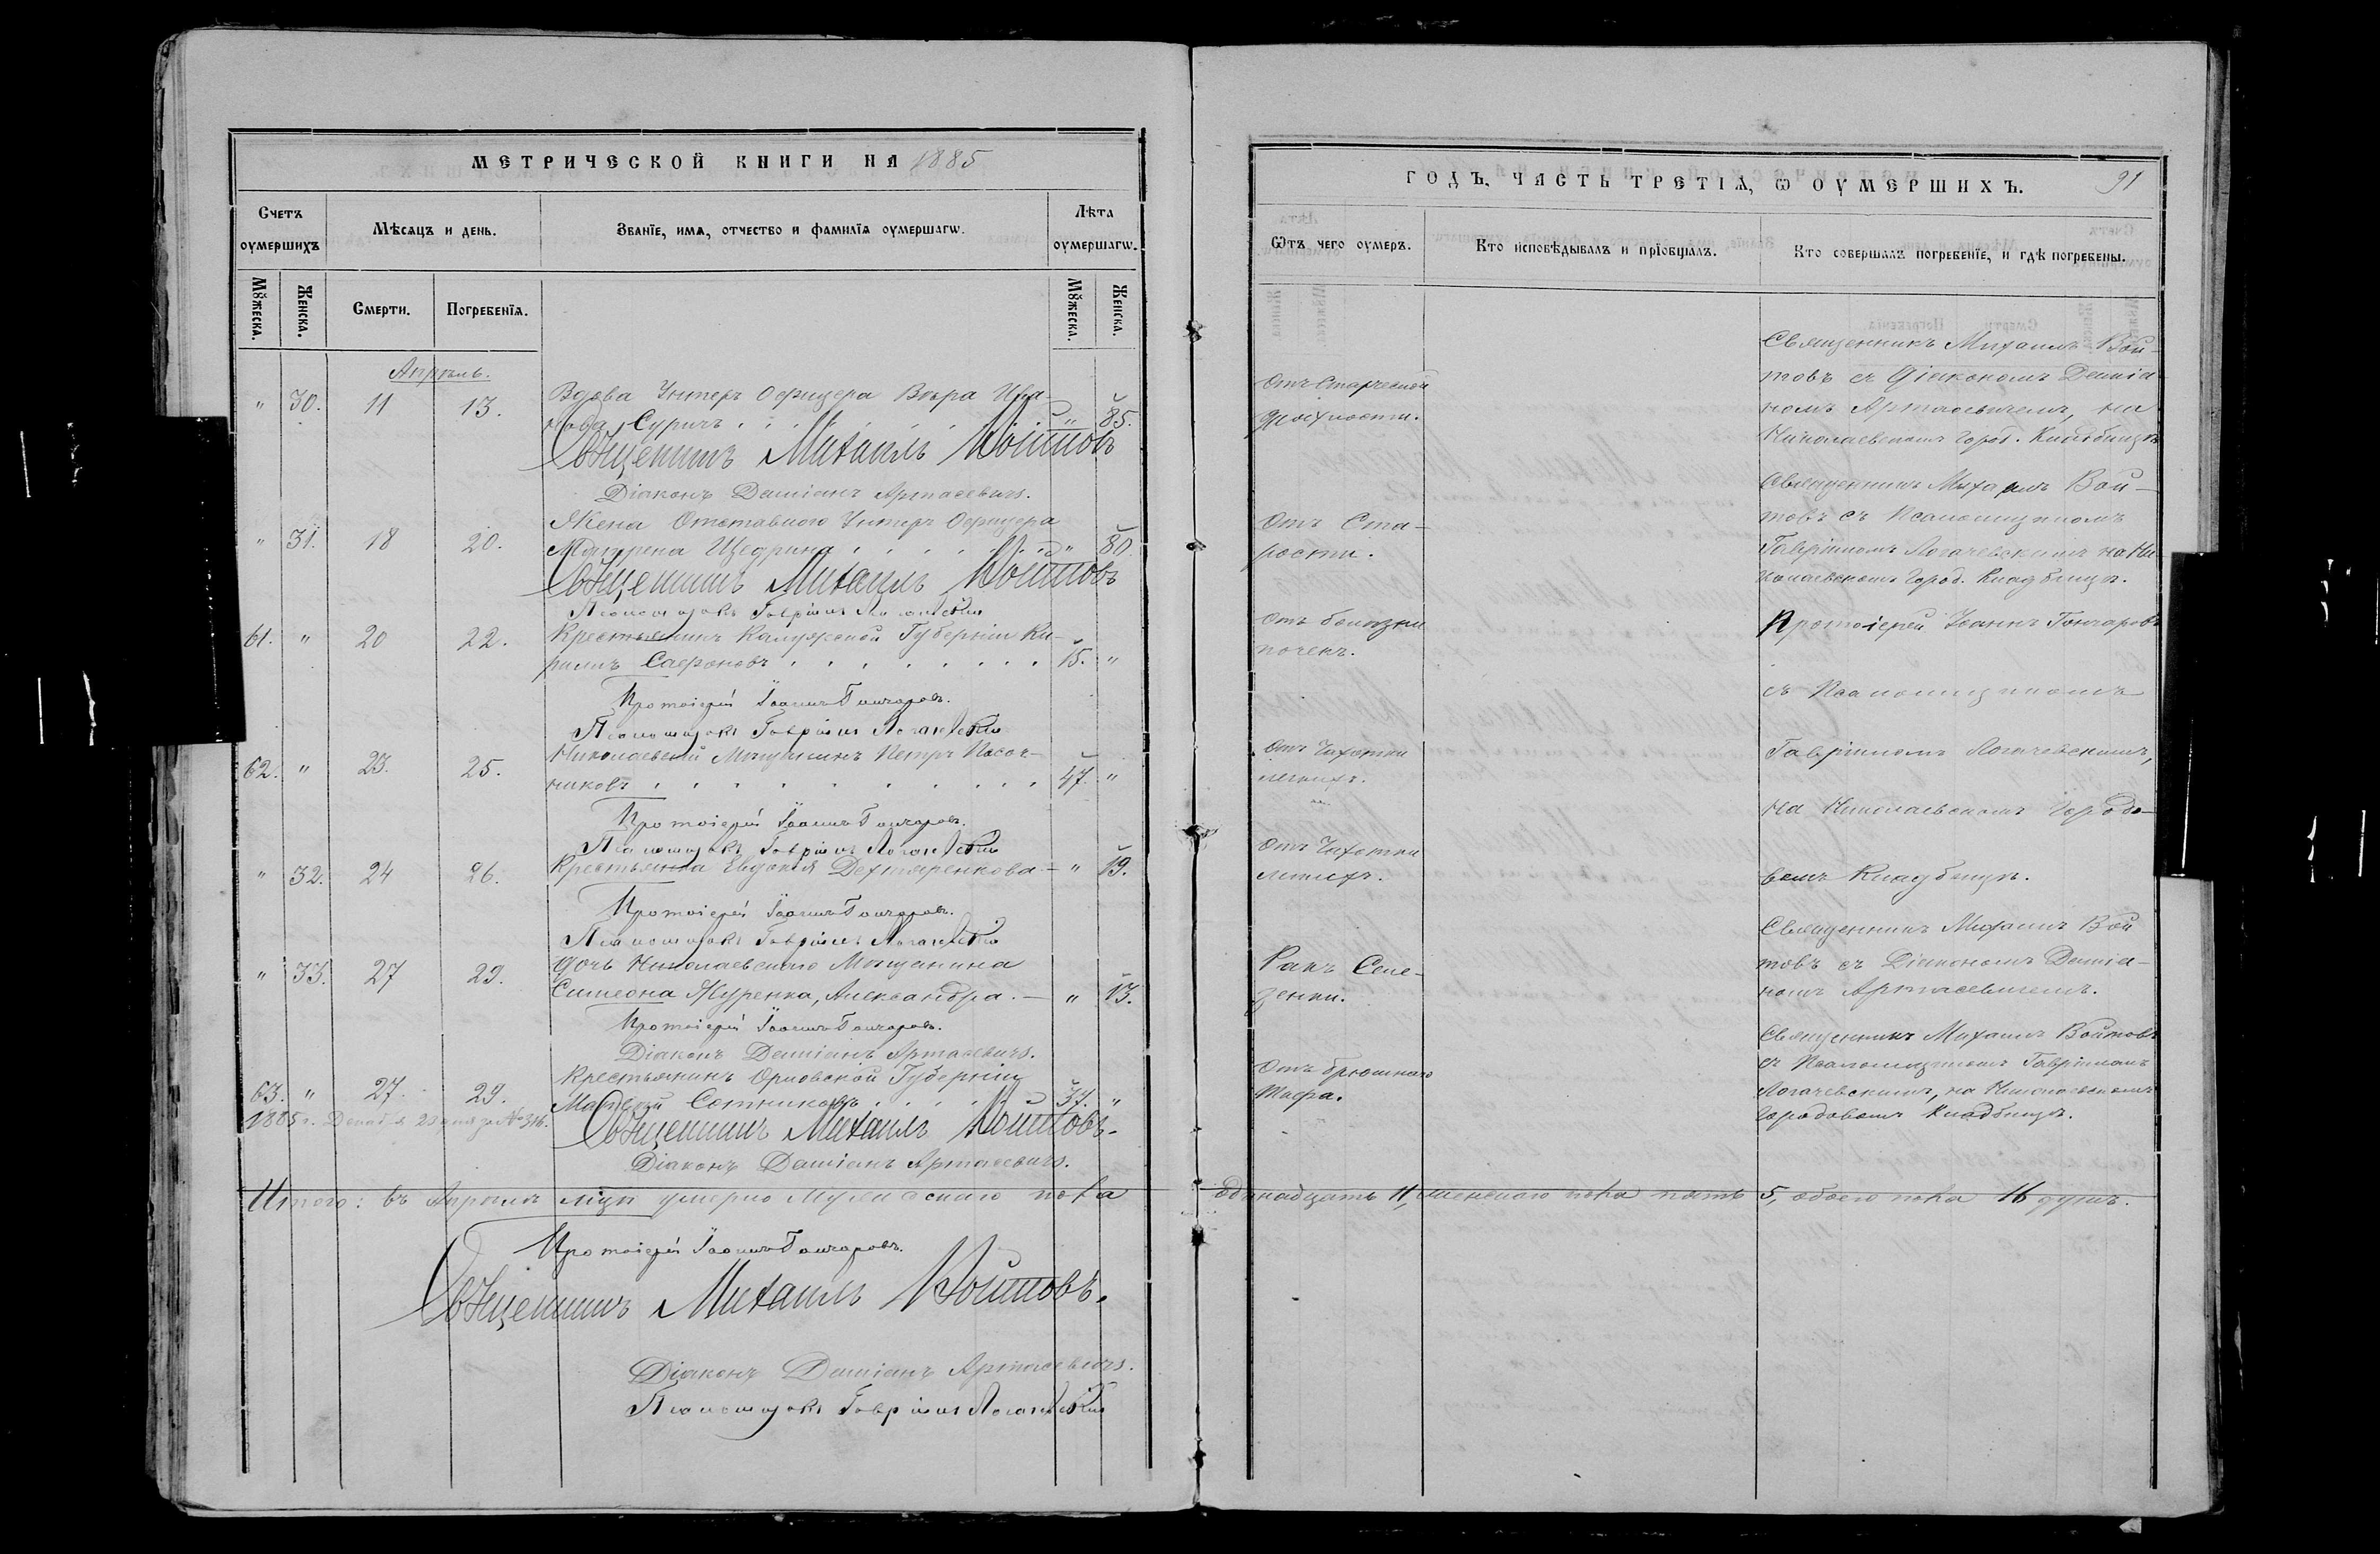 МЕТРИЧЕСКОЙ КНИГИ НА 1885
Счетъ оумершихъ
Мѣсяцъ и день.
Званїе, имя, отчество и фамилїя оумершагѡ.
Лѣта оумершагѡ.
Мꙋжеска.
Женска.
Смерти.
Погребенїя.
Мꙋжеска.
Женска.
Апрѣль.
" 30. 11 13. Вдова Унтеръ Офицера Вѣра Ива-
нова Суричъ . . . " 85.
Священникъ Михаилъ Войтовъ
Діаконъ Даміанъ Артасевичъ.
" 31. 18 20. Жена Отставнаго Унтеръ Офицера
Матрена Щедрина . . . " 80.
Священникъ Михаилъ Войтовъ
Псаломщикъ Гавріилъ Логачевскій
61. " 20 22. Крестьянинъ Калужской Губерніи Ки-
рилъ Сафоновъ . . . 15. "
Протоіерей Іоаннъ Гончаровъ.
Псаломщикъ Гавріилъ Логачевскій
62. " 23. 25. Николаевскій Мѣщанинъ Петръ Пасеч-
никовъ . . . 47. "
Протоіерей Іоаннъ Гончаровъ.
Псаломщикъ Гавріилъ Логачевскій
" 32. 24 26. Крестьянка Евдокія Дехтяренкова - " 19.
Протоіерей Іоаннъ Гончаровъ.
Псаломщикъ Гавріилъ Логачевскій
" 33. 27 29. Дочь Николаевскаго Мѣщанина
Симеона Журенка, Александра. - " 13.
Протоіерей Іоаннъ Гончаровъ.
Діаконъ Даміанъ Артасевичъ.
63. " 27. 29. Крестьянинъ Орловской Губерніи
Матвѣй Сотниковъ . . . 31. "
1885 г. Декабря 23 дня за № 316.
Священникъ Михаилъ Войтовъ.
Діаконъ Даміанъ Артасевичъ.
Итого: въ Апрѣлѣ мѣцѣ умерло мужескаго пола
Протоіерей Іоаннъ Гончаровъ.
Священникъ Михаилъ Войтовъ.
Діаконъ Даміанъ Артасевичъ.
Псаломщикъ Гавріилъ Логачевскій
ГОДЪ, ЧАСТЬ ТРЕТІЯ, Ѡ ОУМЕРШИХЪ. 91
Ѿтъ чего оумеръ.
Кто исповѣдывалъ и прїобщалъ.
Кто совершалъ погребенїе, и гдѣ погребены.
Отъ Старческой
дряхлости.
Священникъ Михаилъ Вой-
товъ съ Діакономъ Даміа-
номъ Артасевичемъ, на
Николаевскомъ Город. Кладбищѣ
Отъ Ста-
рости.
Священникъ Михаилъ Вой-
товъ съ Псаломщикомъ
Гавріиломъ Логачевскимъ на Ни-
колаевскомъ Город. Кладбищѣ.
Отъ болѣзни
почекъ.
Протоіерей Іоаннъ Гончаровъ
съ Псаломщикомъ
Отъ Чахотки
легкихъ.
Гавріиломъ Логачевскимъ,
на Николаевскомъ Городо-
Отъ Чахотки
легкихъ.
вомъ Кладбищѣ.
Ракъ Селе-
зенки.
Священникъ Михаилъ Вой
товъ съ Діакономъ Даміа-
номъ Артасевичемъ.
Отъ брюшнаго
тифа.
Священникъ Михаилъ Войтовъ
съ Псаломщикомъ Гавріиломъ
Логачевскимъ, на Николаевскомъ
Городовомъ Кладбищѣ.
одинадцать 11, женскаго пола пять 5, обоего пола 16 душъ.